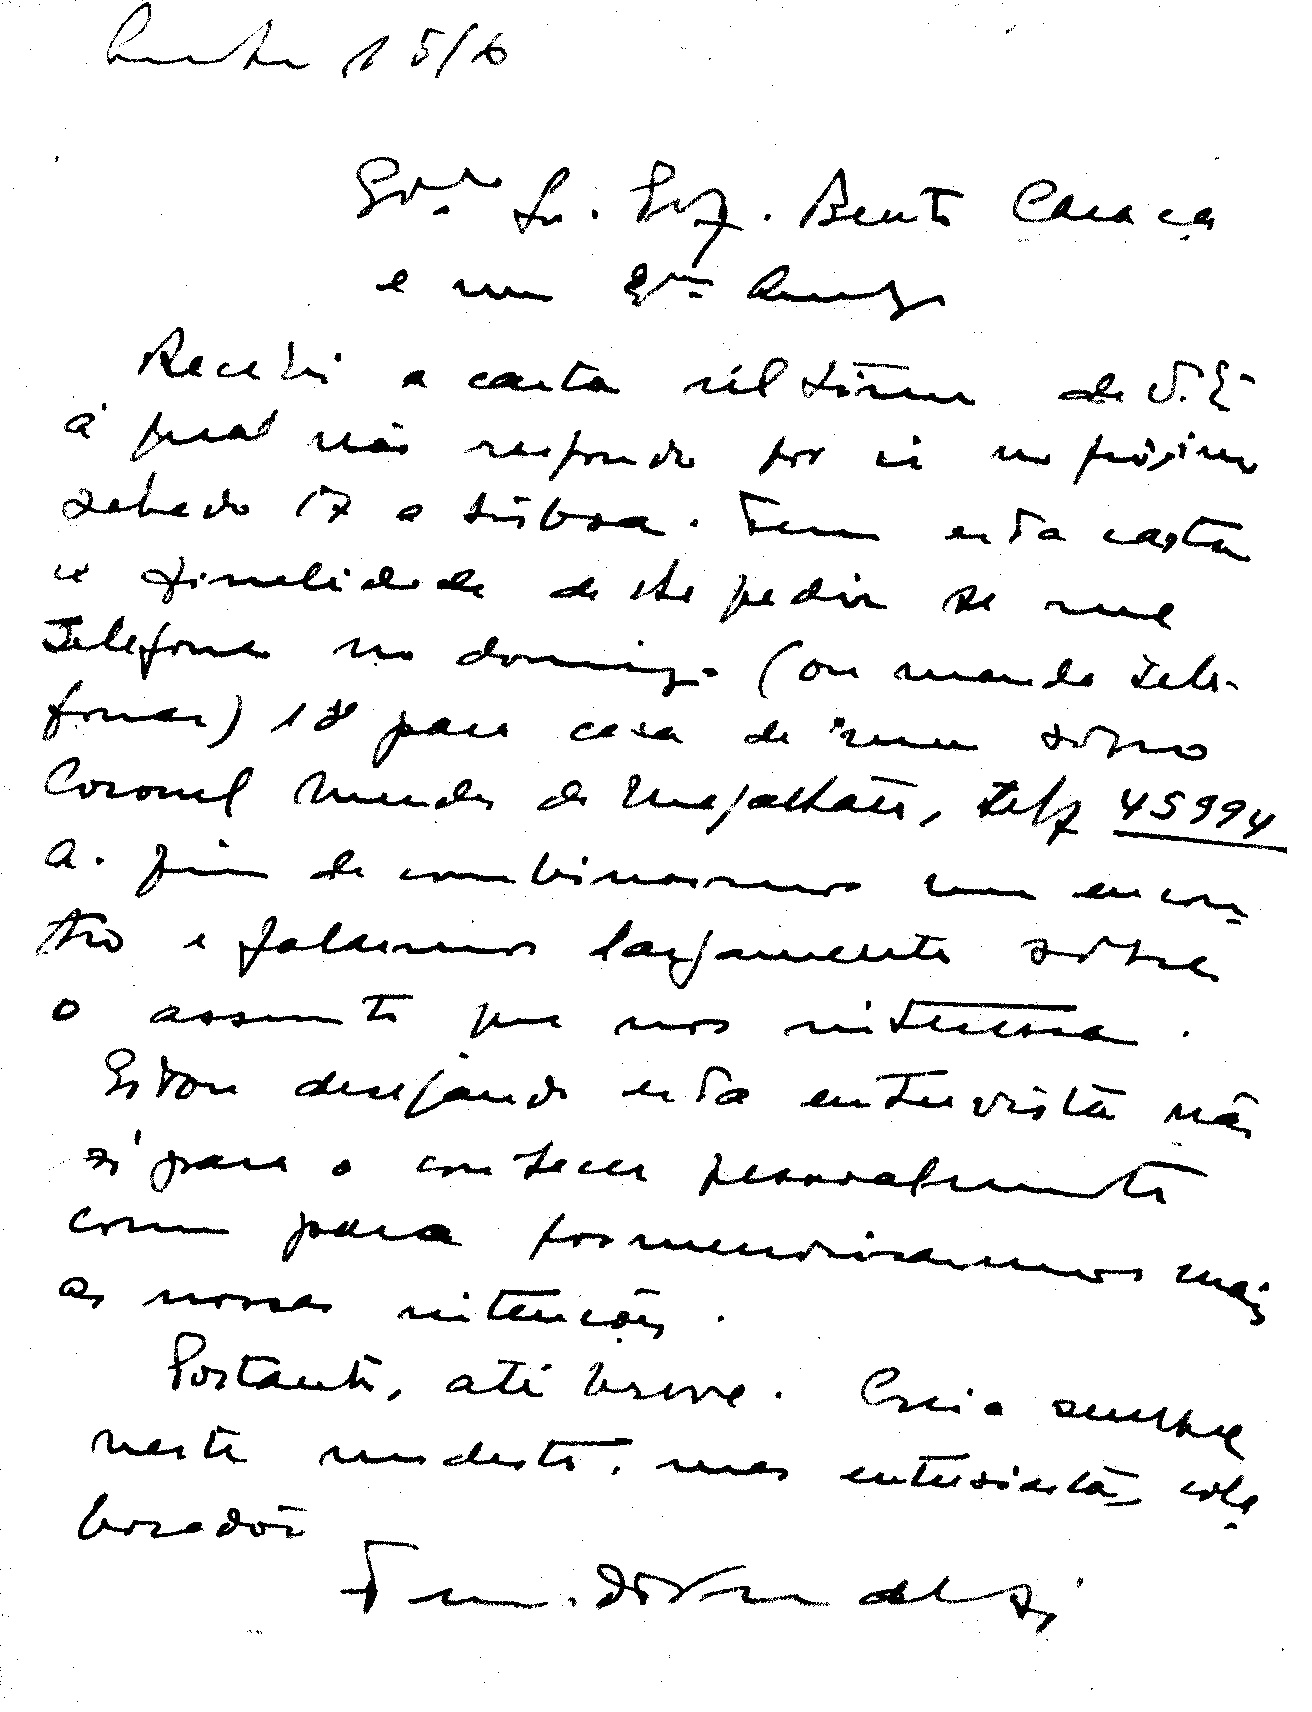 15/6
Exmo Sr. Prof. Bento Caraça
e meu Exmo Amigo
Recebi a carta última de V. Ex
á qual não respondo por ir no próximo
sabado 17 a Lisboa. Tem esta carta
a finalidade de lhe pedir se me
telefona no domingo (ou manda tele-
fonar) 18 para casa de meu sogro
Coronel Mendes de Magalhães, telf 45994
a fim de combinarmos um encon-
tro e falarmos largamente sôbre
o assunto que nos interessa.
Estou desejando esta entrevista não
só para o conhecer pessoalmente
como para pormenorisarmos mais
as nossas intenções.
Portanto, até breve. Creia sempre
neste modesto, mas entusiasta, cola
borador